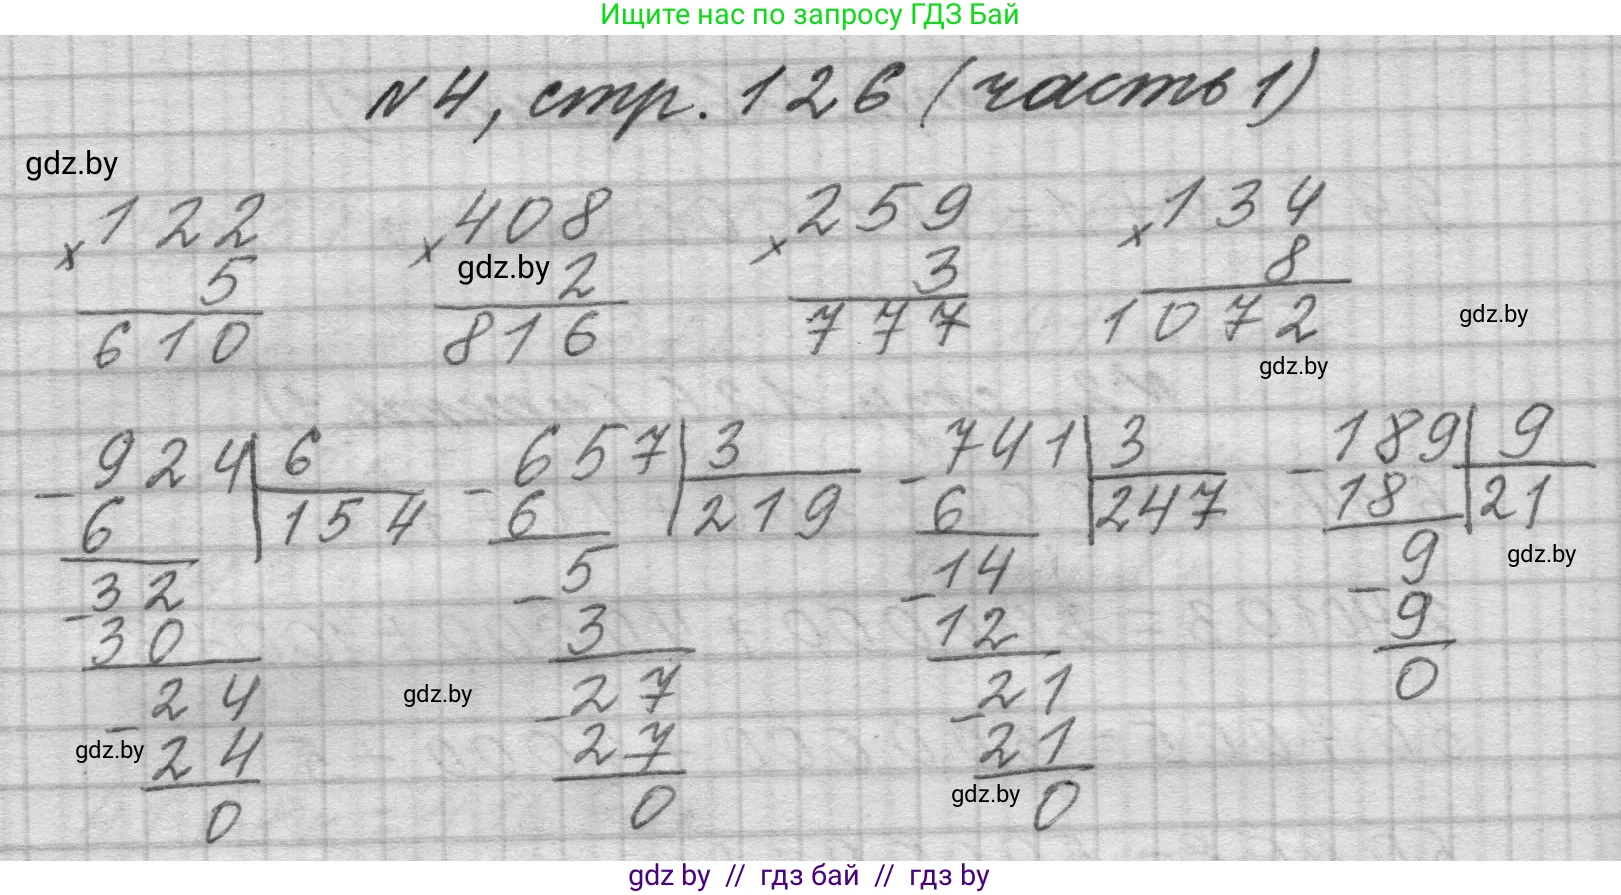 Ищите нас по запросу ГДЗ Бай
№4, стр. 126 (часть 1)
gdz.by
122 408 259 134
× 5 × gdz.by 2 × 3 × 8
610 816 777 1072
gdz.by
gdz.by
- 924 | 6 - 657 | 3 - 741 | 3 - 189 | 9
6 154 6 219 6 247 18 21
- 32 - 5 - 14 - 9
gdz.by
30 3 12 9
- 24 - 27 - 21 0
gdz.by
24 27 21
gdz.by
0 0 0
gdz.by
gdz by // гдз бай // гдз by